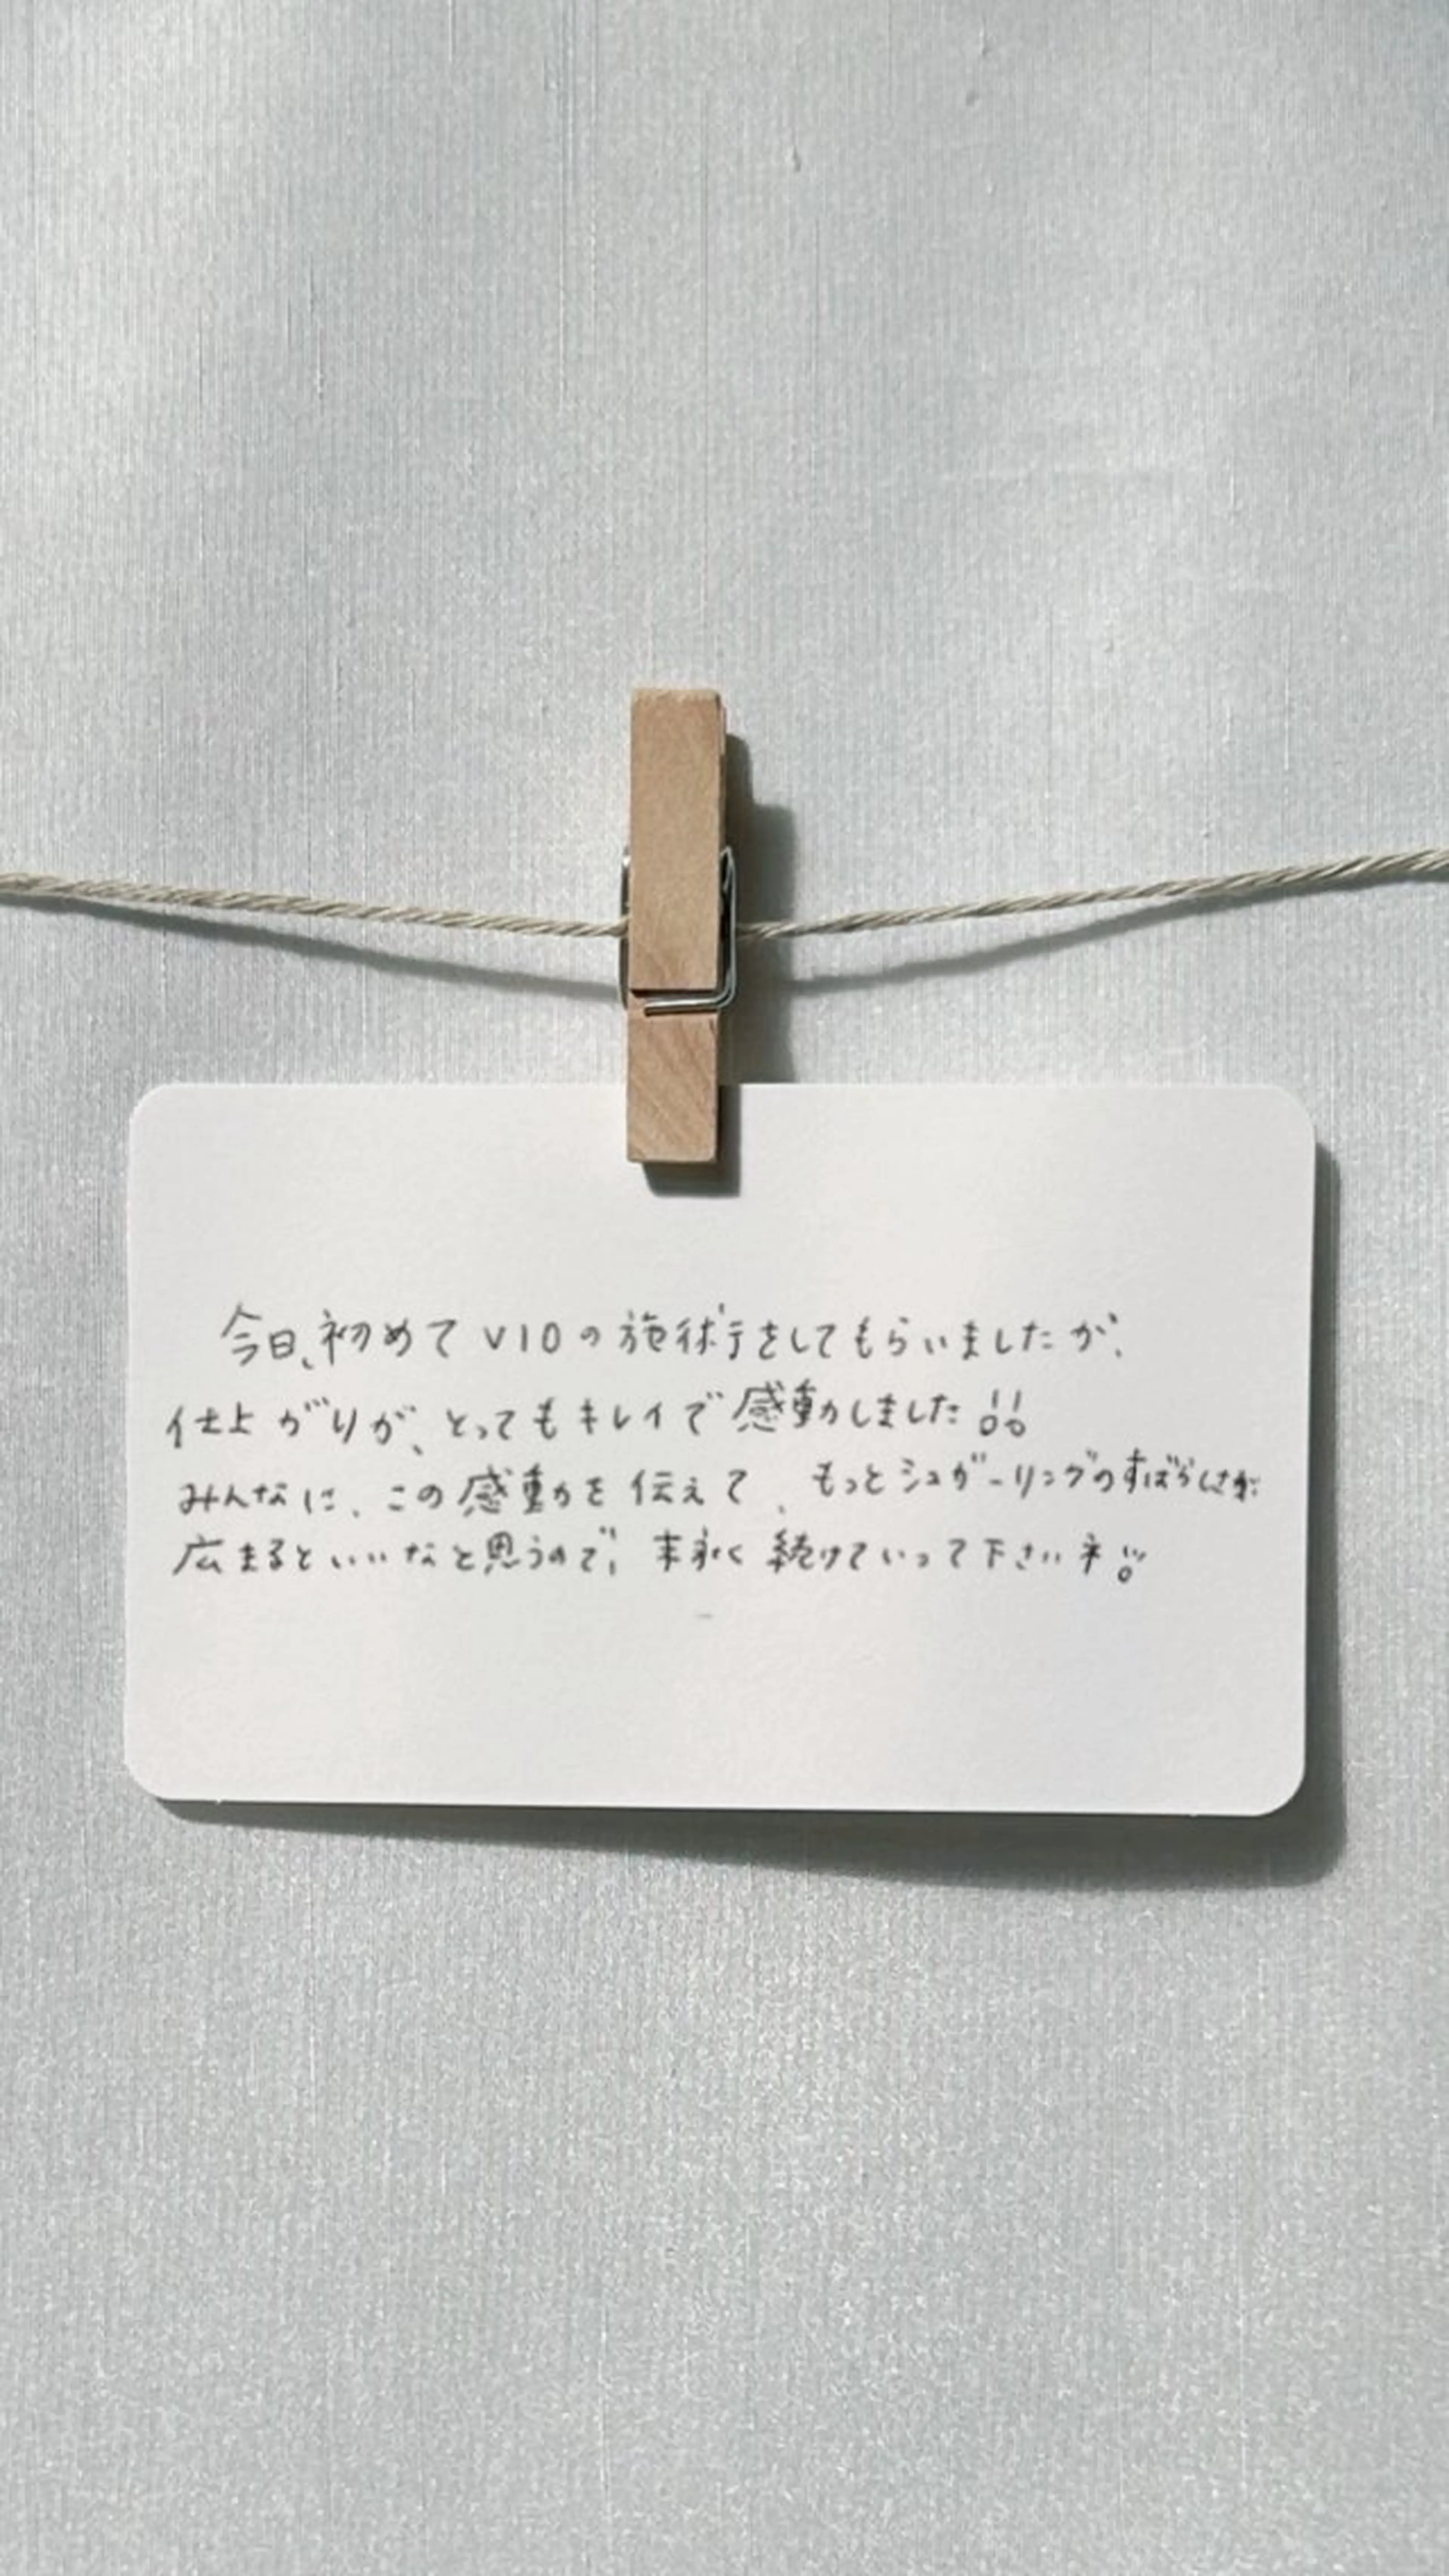 今日、初めてVIOの施術をしてもらいましたが、
仕上がりが、とってもキレイで感動しました!!
みんなに、この感動を伝えて、もっとシュガーリングのすばらしさが
広まるといいなと思うので、末永く続けていって下さいネ!!